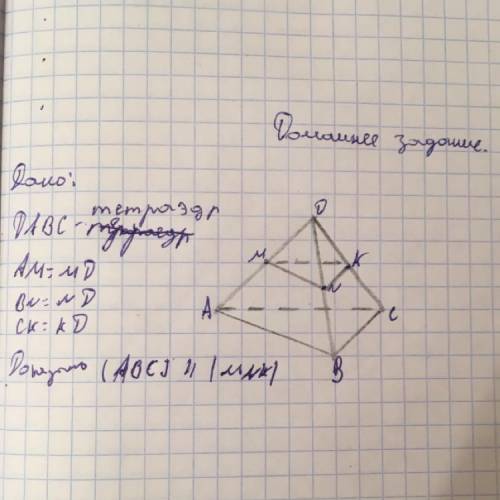 Домашнее задание.
Дано:
DABC - тетраэдр
AM = MD
BN = ND
CK = KD
Доказать (ABC) || (MNK)
D
M
K
N
A
C
B